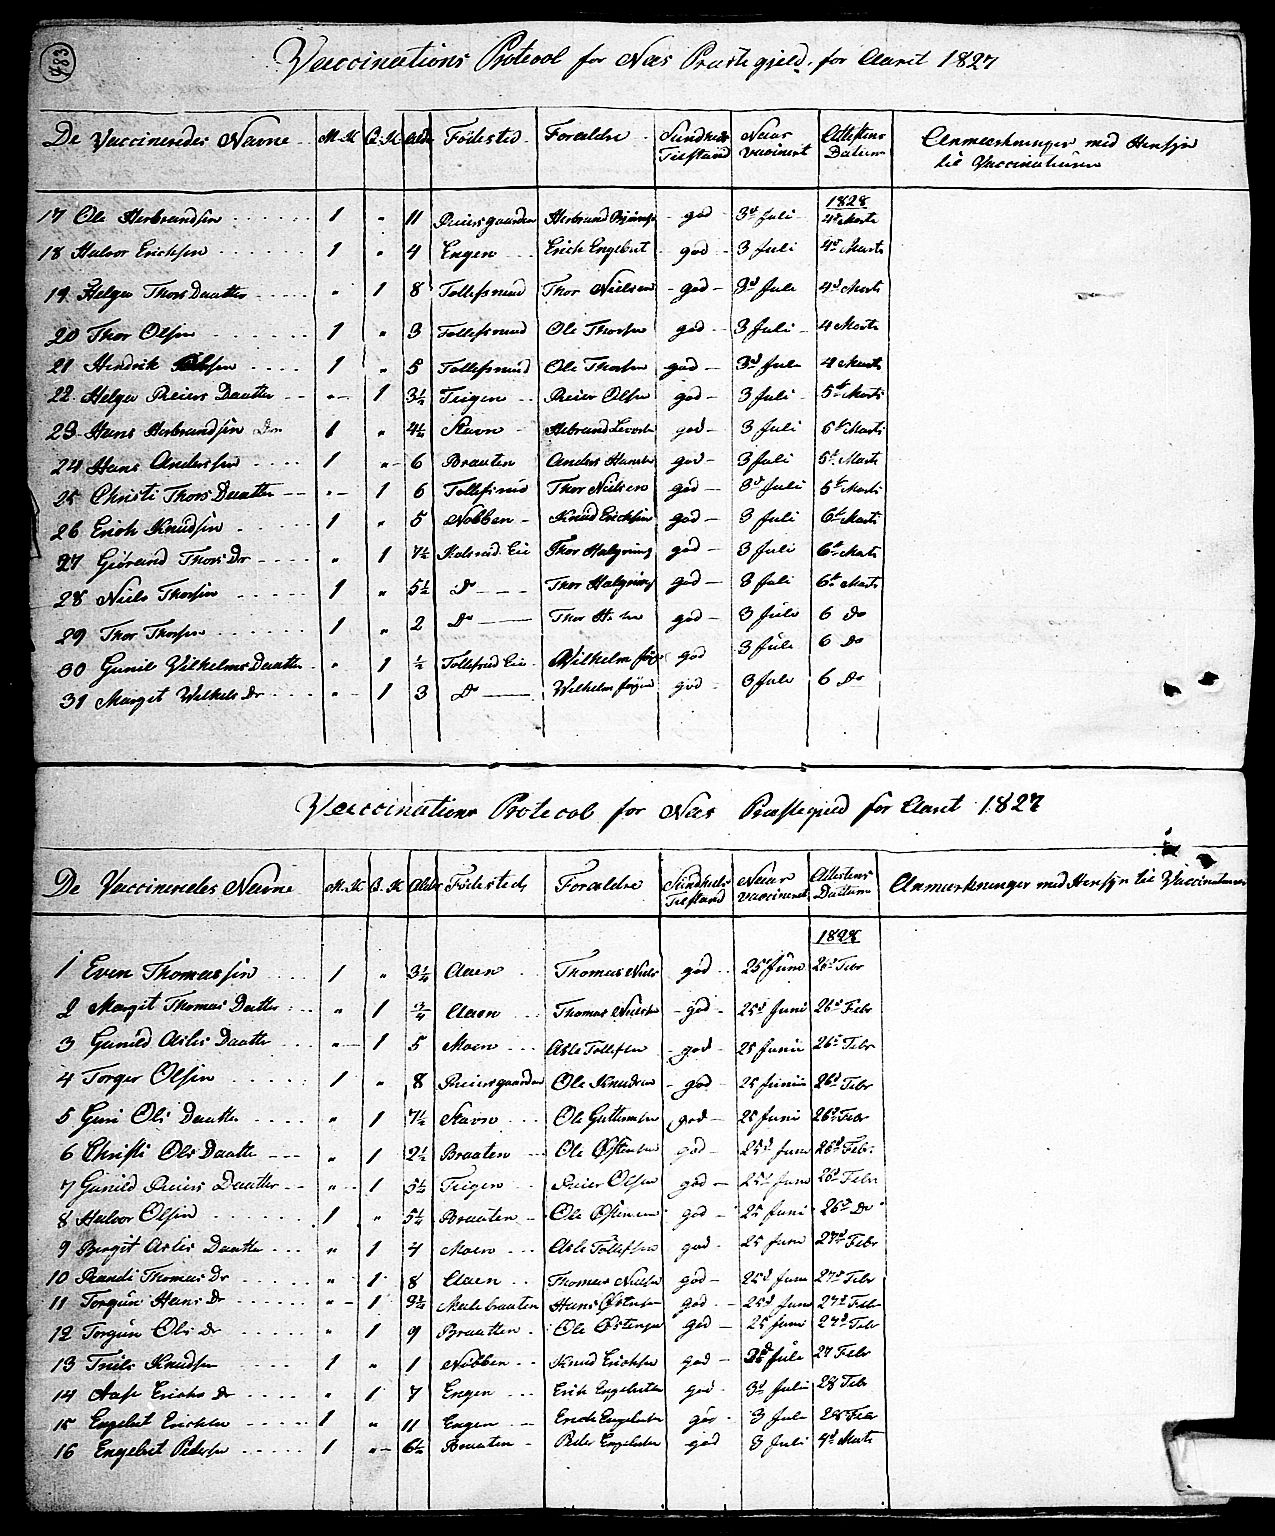 483
Vaccinations Protocol for Næs Præstegjeld for Aaret 1827
De Vaccineredes Navne M.K Q.K Alder Födested Forældre Sundheds Tilstand Naar vaccineret Attestens Datum Anmærkninger med Hensyn til Vaccinationen
1828
17 Ole Herbrandsen 1 " 11 Reiersgaarden Herbrand god 3d Juli 4d Marts
18 Halvor Erichsen 1 " 4 Engen Erich Engebret god 3 Juli 4d Marts
19 Helge Thors Daatter " 1 8 Tollefsrud Thor Nielsen god 3d Juli 4d Marts
20 Thor Olsen 1 " 3 Tollefsrud Ole Thorsen god 3 Juli 4 Marts
21 Hendrik Olsen 1 " 5 Tollefsrud Ole Thorsen god 3d Juli 4 Marts
22 Helge Reiers Daatter " 1 3½ Teigen Reier Olsen god 3 Juli 5t Marts
23 Hans Herbrandsen 1 " 4¼ Stavn god 3 Juli 5t Marts
24 Hans Andersen 1 " 6 Braaten Anders Hansen god 3 Juli 5t Marts
25 Christi Thors Daatter " 1 6 Tollefsrud Thor Nielsen god 3d Juli 5t Marts
26 Erich Knudsen 1 " 5 Nobben Knud Erichsen god 3 Juli 6t Marts
27 Giörand Thors Dr " 1 7½ Eie Thor Halgrims god 3 Juli 6t Marts
28 Niels Thorsen 1 " 5½ Do Thor Halgrims god 3 Juli 6t Marts
29 Thor Thorsen 1 " 2 Do Thor god 3 Juli 6 Do
30 Gunil Vilhelms Daatter " 1 ½ Tollefrud Eie Wilhelm god 3 Juli 6 Do
31 Margit Wilhels Dr " 1 3 Do Wilhelm god 3 Juli 6 Do
Vaccinations Protocol for Næs Præstegield for Aaret 1827
De Vaccineredes Navne M.K Q.K Alder Födested Forældre Sundheds Tilstand Naar vaccineret Attestens Dattum Anmærkninger med Hensyn til Vaccinationen
1828
1 Even Thomassen 1 " 3¼ Aaen Thomas Niels god 25d Juni 26d Febr
2 Margit Thomas Datter " 1 ¾ Aaen Thomas Nielsen god 25d Juni 26d Febr
3 Gunild Asles Daatter " 1 5 Moen Asle Tollefsen god 25 Junii 26d Febr
4 Torger Olsen 1 " 8 Reiersgaarden Ole Knudsen god 25 Junii 26d Febr
5 Guri Ols Daatter " 1 7½ Stavn Ole Guttormsen god 25 Juni 26d Febr
6 Christi Ols Daatter " 1 2½ Braaten Ole Östensen god 25d Juni 26d Febr
7 Gunild Reiers Daatter " 1 5½ Teigen Reier Olsen god 25d Juni 26d Febr
8 Halvor Olsen 1 " 5¼ Braaten Ole Östensen god 25 Juni 26d Do
9 Bergit Asles Daatter " 1 4 Moen Asle Tollefsen god 25 Juni 27d Febr
10 Randi Thomas Dr " 1 8 Aaen Thomas Nielsen god 25d Juni 27d Febr
11 Torgun Hans Dr " 1 Hans Östensen god 25d Juni 27d Febr
12 Torgun Ols Dr " 1 9 Braatten Ole Östensen god 25 Juni 27d Febr
13 Knudsen 1 " 1 Nobben Knud Erichsen god Juli 27 Febr
14 Aase Erichs Dr " 1 7 Engen Erik Engebretsen god 3d Juli 28 Febr
15 Engebret Erichsen 1 " 11 Engen Erich Engebretsen god 3 Juli 28 Febr
16 Engebret Pedersen 1 " 6½ Braaten Peder Engebretsen god 3 Juli 4d Marts